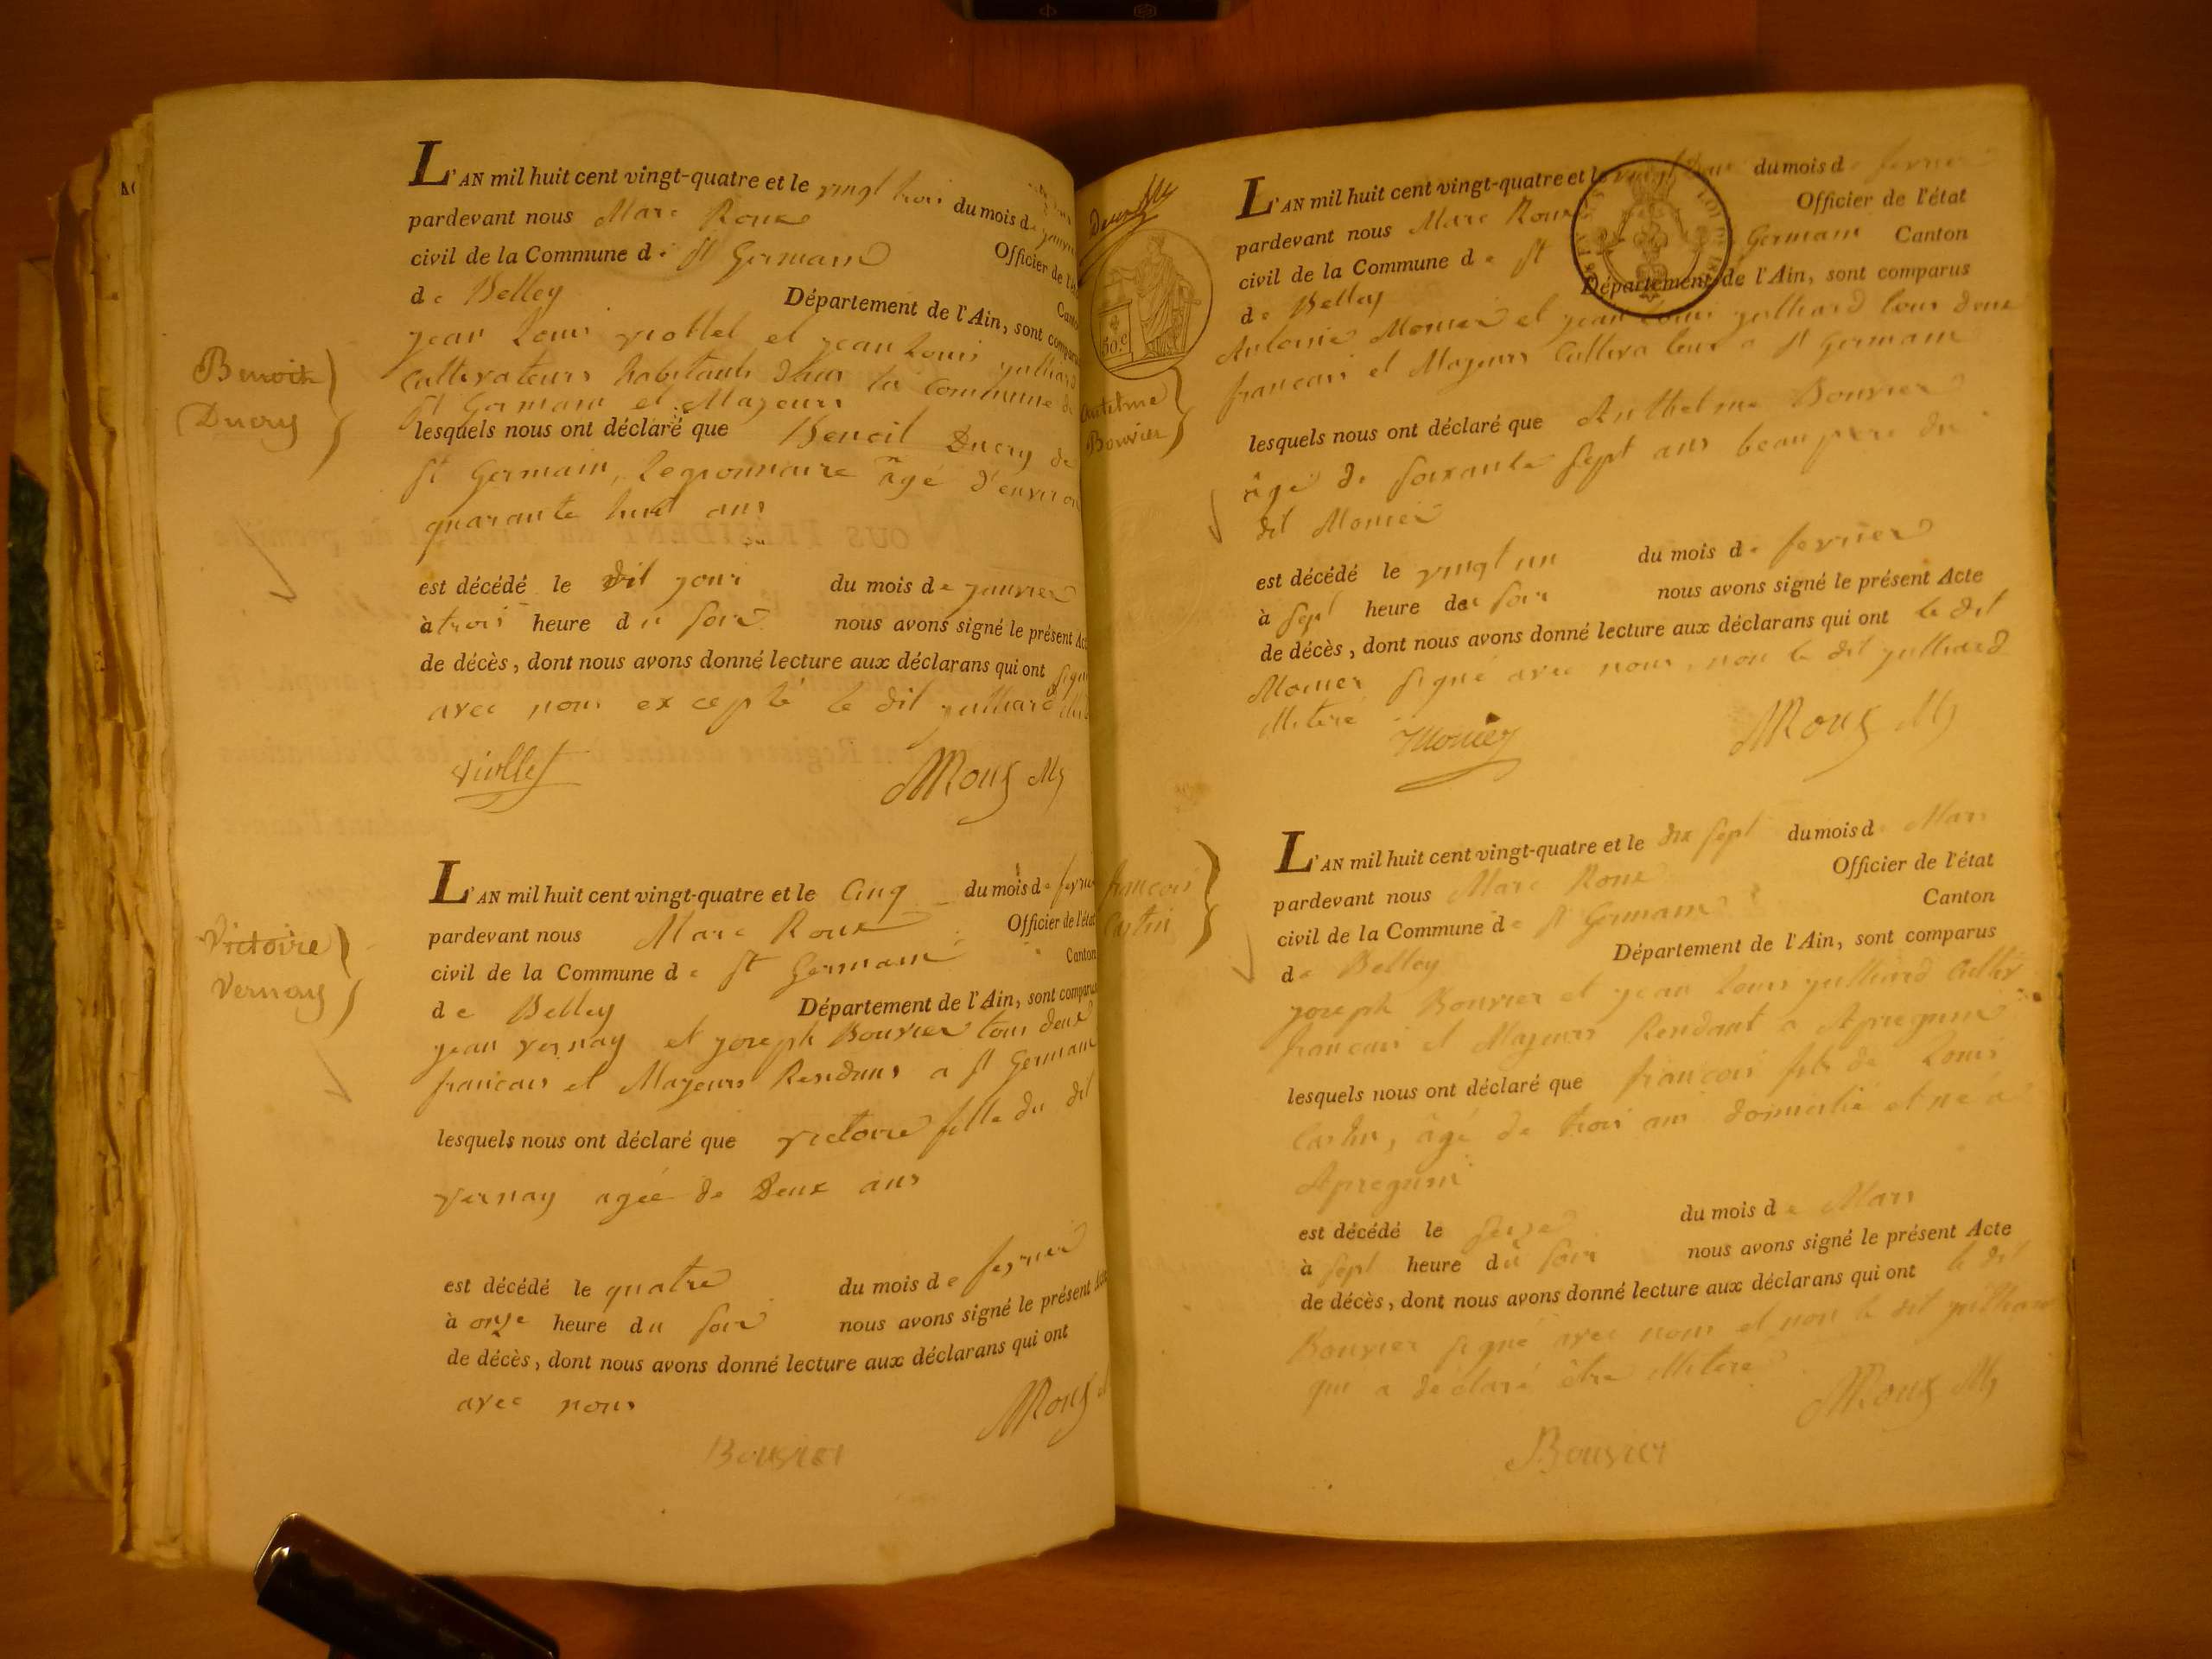 Benoit
Ducry
L'AN mil huit cent vingt-quatre et le vingt trois du mois de janvier
pardevant nous Marc Roux Officier de l'é
civil de la Commune de St Germain Canto
de Belley Département de l'Ain, sont comparus
jean Louis viollet et jean Louis julliard
Cultivateurs habitants dans la Commune de
St Germain et Majeurs
lesquels nous ont déclaré que Benoit Ducry de
St Germain, Legionnaire âgé d'environ
quarante huit ans
est décédé le dit jour du mois de janvier
à trois heure du soir nous avons signé le présent Ac
de décès, dont nous avons donné lecture aux déclarans qui ont signé
avec nous excepté le dit julliard
viollet
Roux
Victoire
Vernay
L'AN mil huit cent vingt-quatre et le Cinq du mois de fevrier
pardevant nous Marc Roux Officier de l'état
civil de la Commune de St Germain Canton
de Belley Département de l'Ain, sont comparus
jean vernay et joseph Bouvier tous deux
francais et Majeurs Rendans a St Germain
lesquels nous ont déclaré que victoire fille du dit
vernay agée de Deux ans
est décédé le quatre du mois de fevrier
à onze heure du soir nous avons signé le présent Acte
de décès, dont nous avons donné lecture aux déclarans qui ont
avec nous
Roux
Bouvier
50.c
Antelme
Bouvier
L'AN mil huit cent vingt-quatre et le vingt deux du mois de fevrier
pardevant nous Marc Roux Officier de l'état
civil de la Commune de St Germain Canton
de Belley Département de l'Ain, sont comparus
Antoine Monier et jean Louis julliard tous deux
francais et Majeurs Cultivateurs a St Germain
lesquels nous ont déclaré que Anthelme Bouvier
âgé de soixante sept ans beau pere du
dit Monier
est décédé le vingt un du mois de fevrier
à sept heure du soir nous avons signé le présent Acte
de décès, dont nous avons donné lecture aux déclarans qui ont le dit
Monier signé avec nous, non le dit julliard
illiteré
Monier
Roux
françois
Castin
L'AN mil huit cent vingt-quatre et le dix sept du mois de Mars
pardevant nous Marc Roux Officier de l'état
civil de la Commune de St Germain Canton
de Belley Département de l'Ain, sont comparus
joseph Bouvier et jean Louis julliard Cultiv
francais et Majeurs Rendant a Apregnin
lesquels nous ont déclaré que francois fils de Louis
Castin, âgé de trois ans domicilié et né a
Apregnin
est décédé le seize du mois de Mars
à sept heure du soir nous avons signé le présent Acte
de décès, dont nous avons donné lecture aux déclarans qui ont le dit
Bouvier signé avec nous et non le dit julliard
qui a declaré être illiteré
Roux
Bouvier